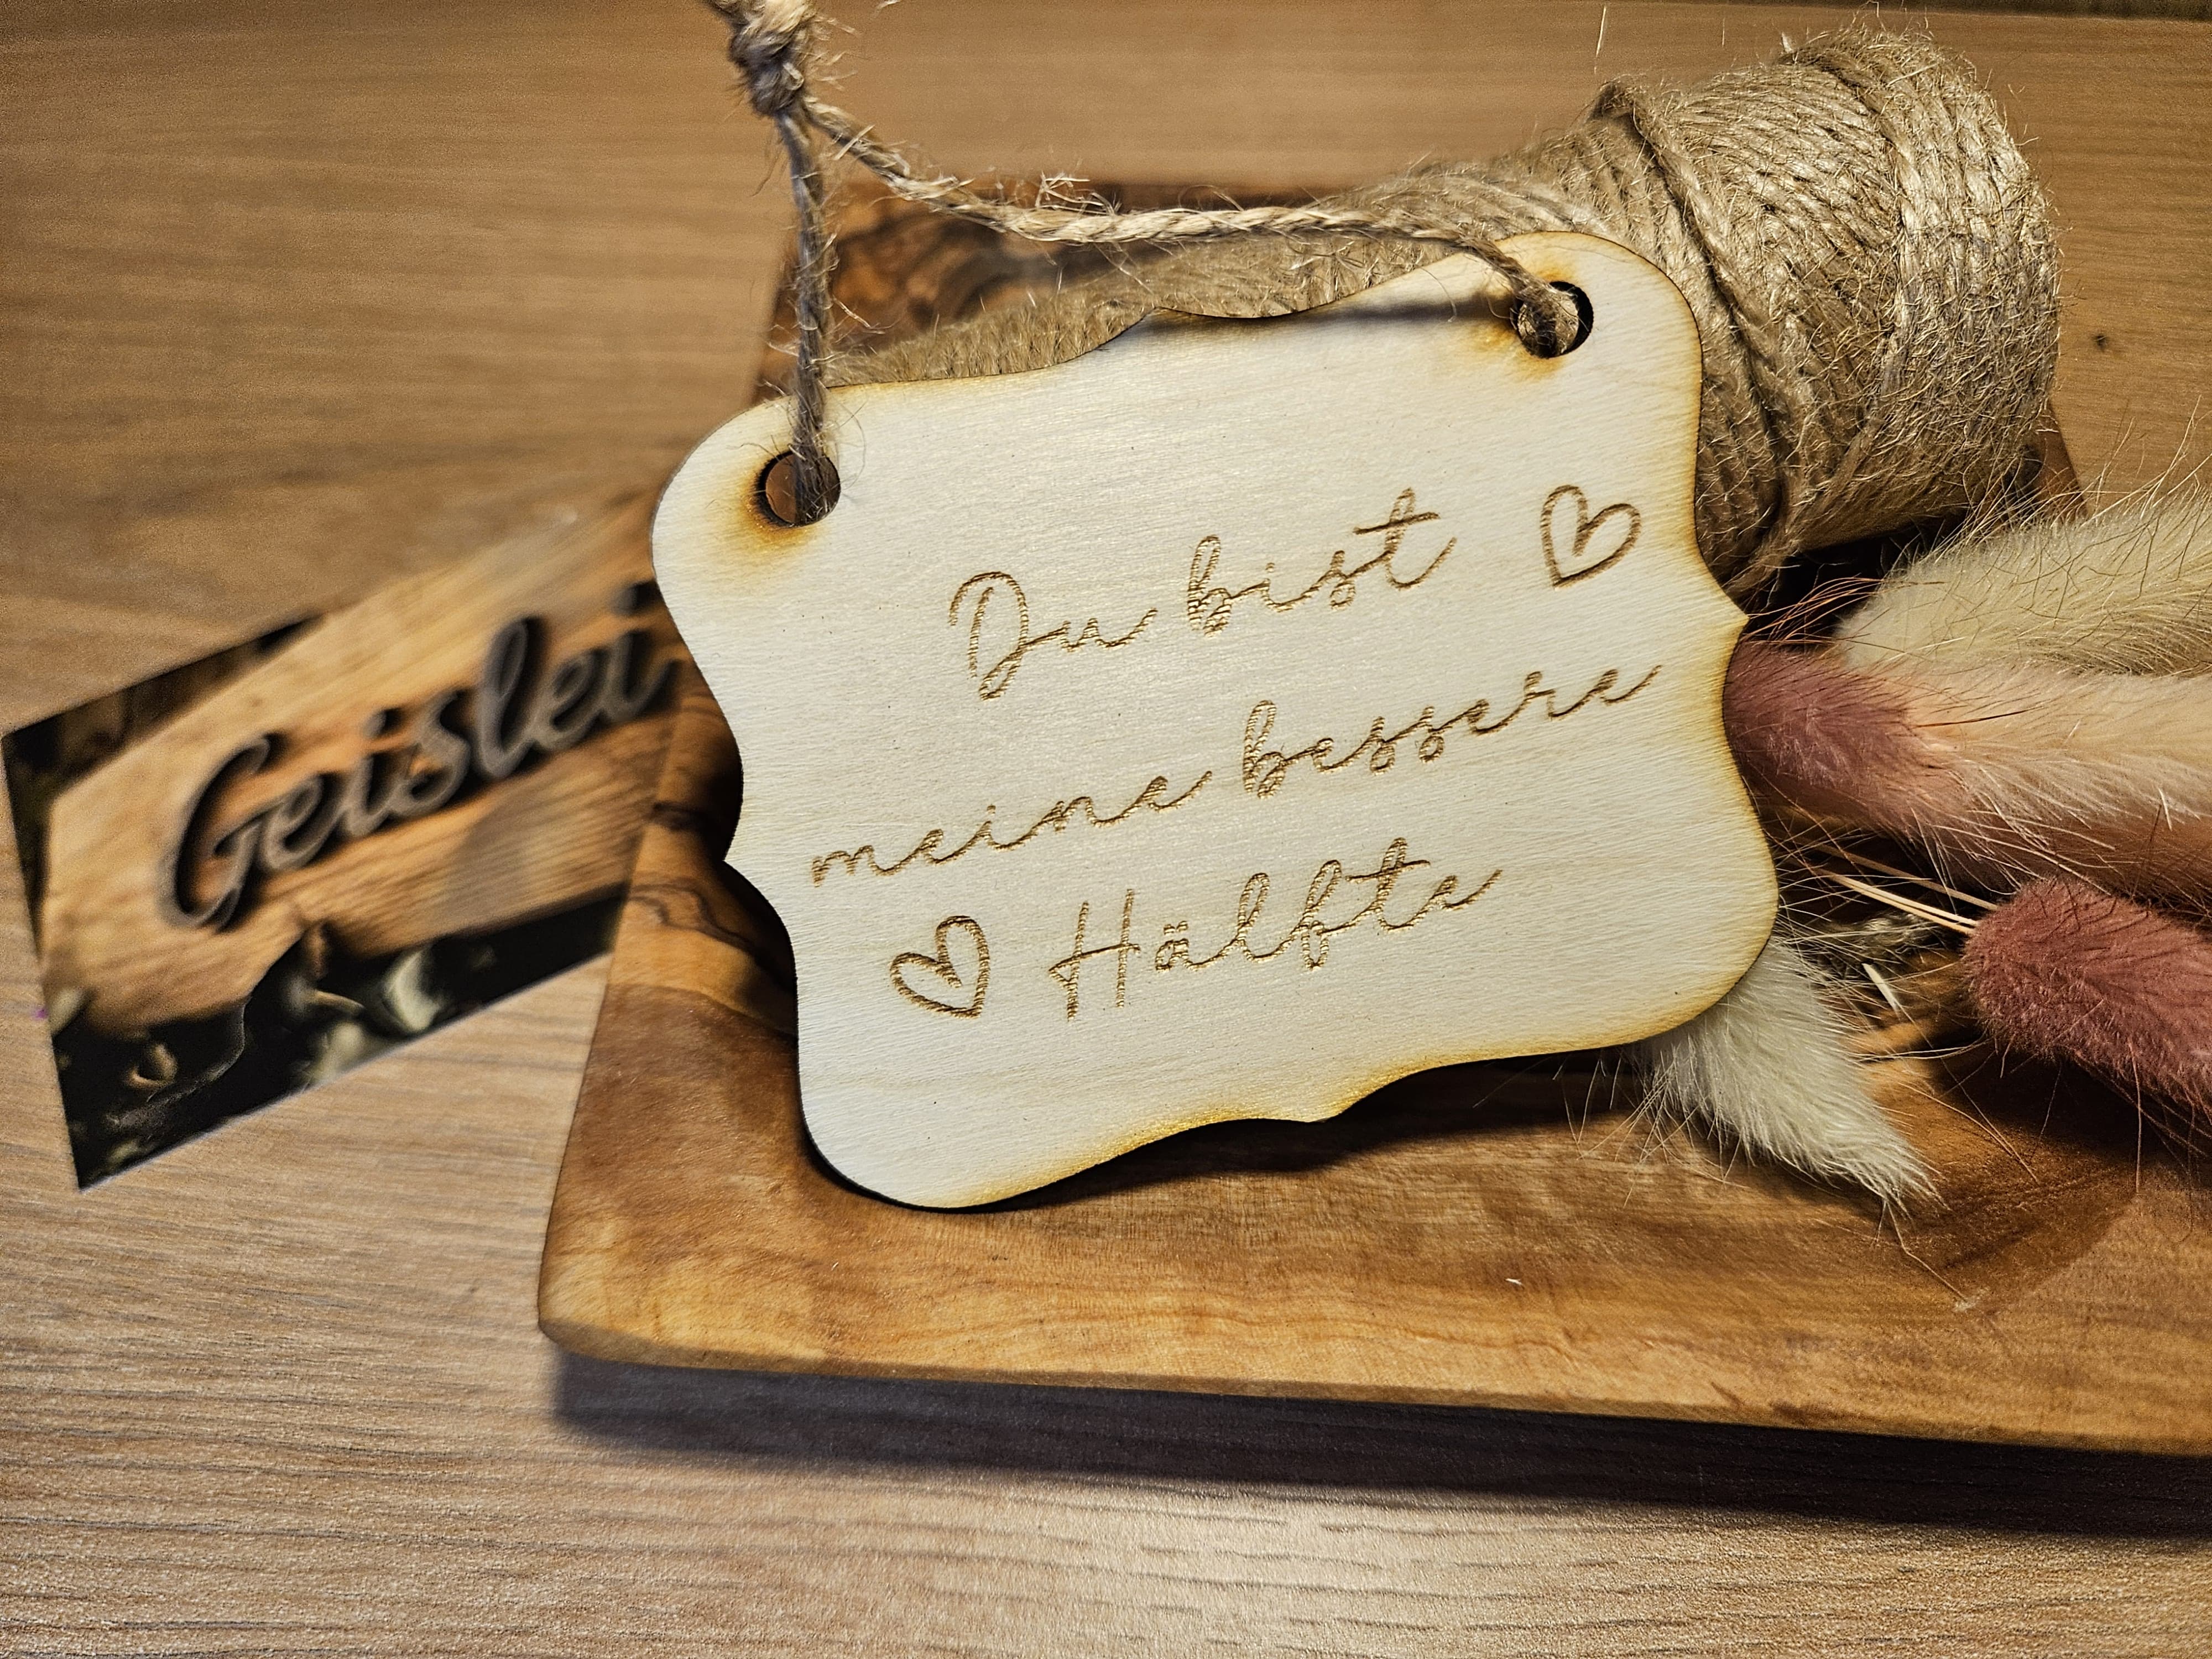 Du bist
meine bessere
Hälfte
Geislei